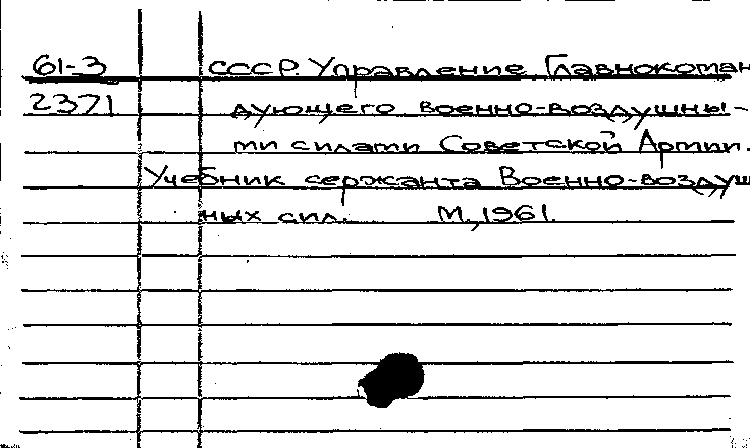 61-3 СССР. Управление Главнокоман
2371 дующего военно-воздушны-
ми силами Советской Армии.
Учебник сержанта Военно-воздуш
ных сил. М., 1961.